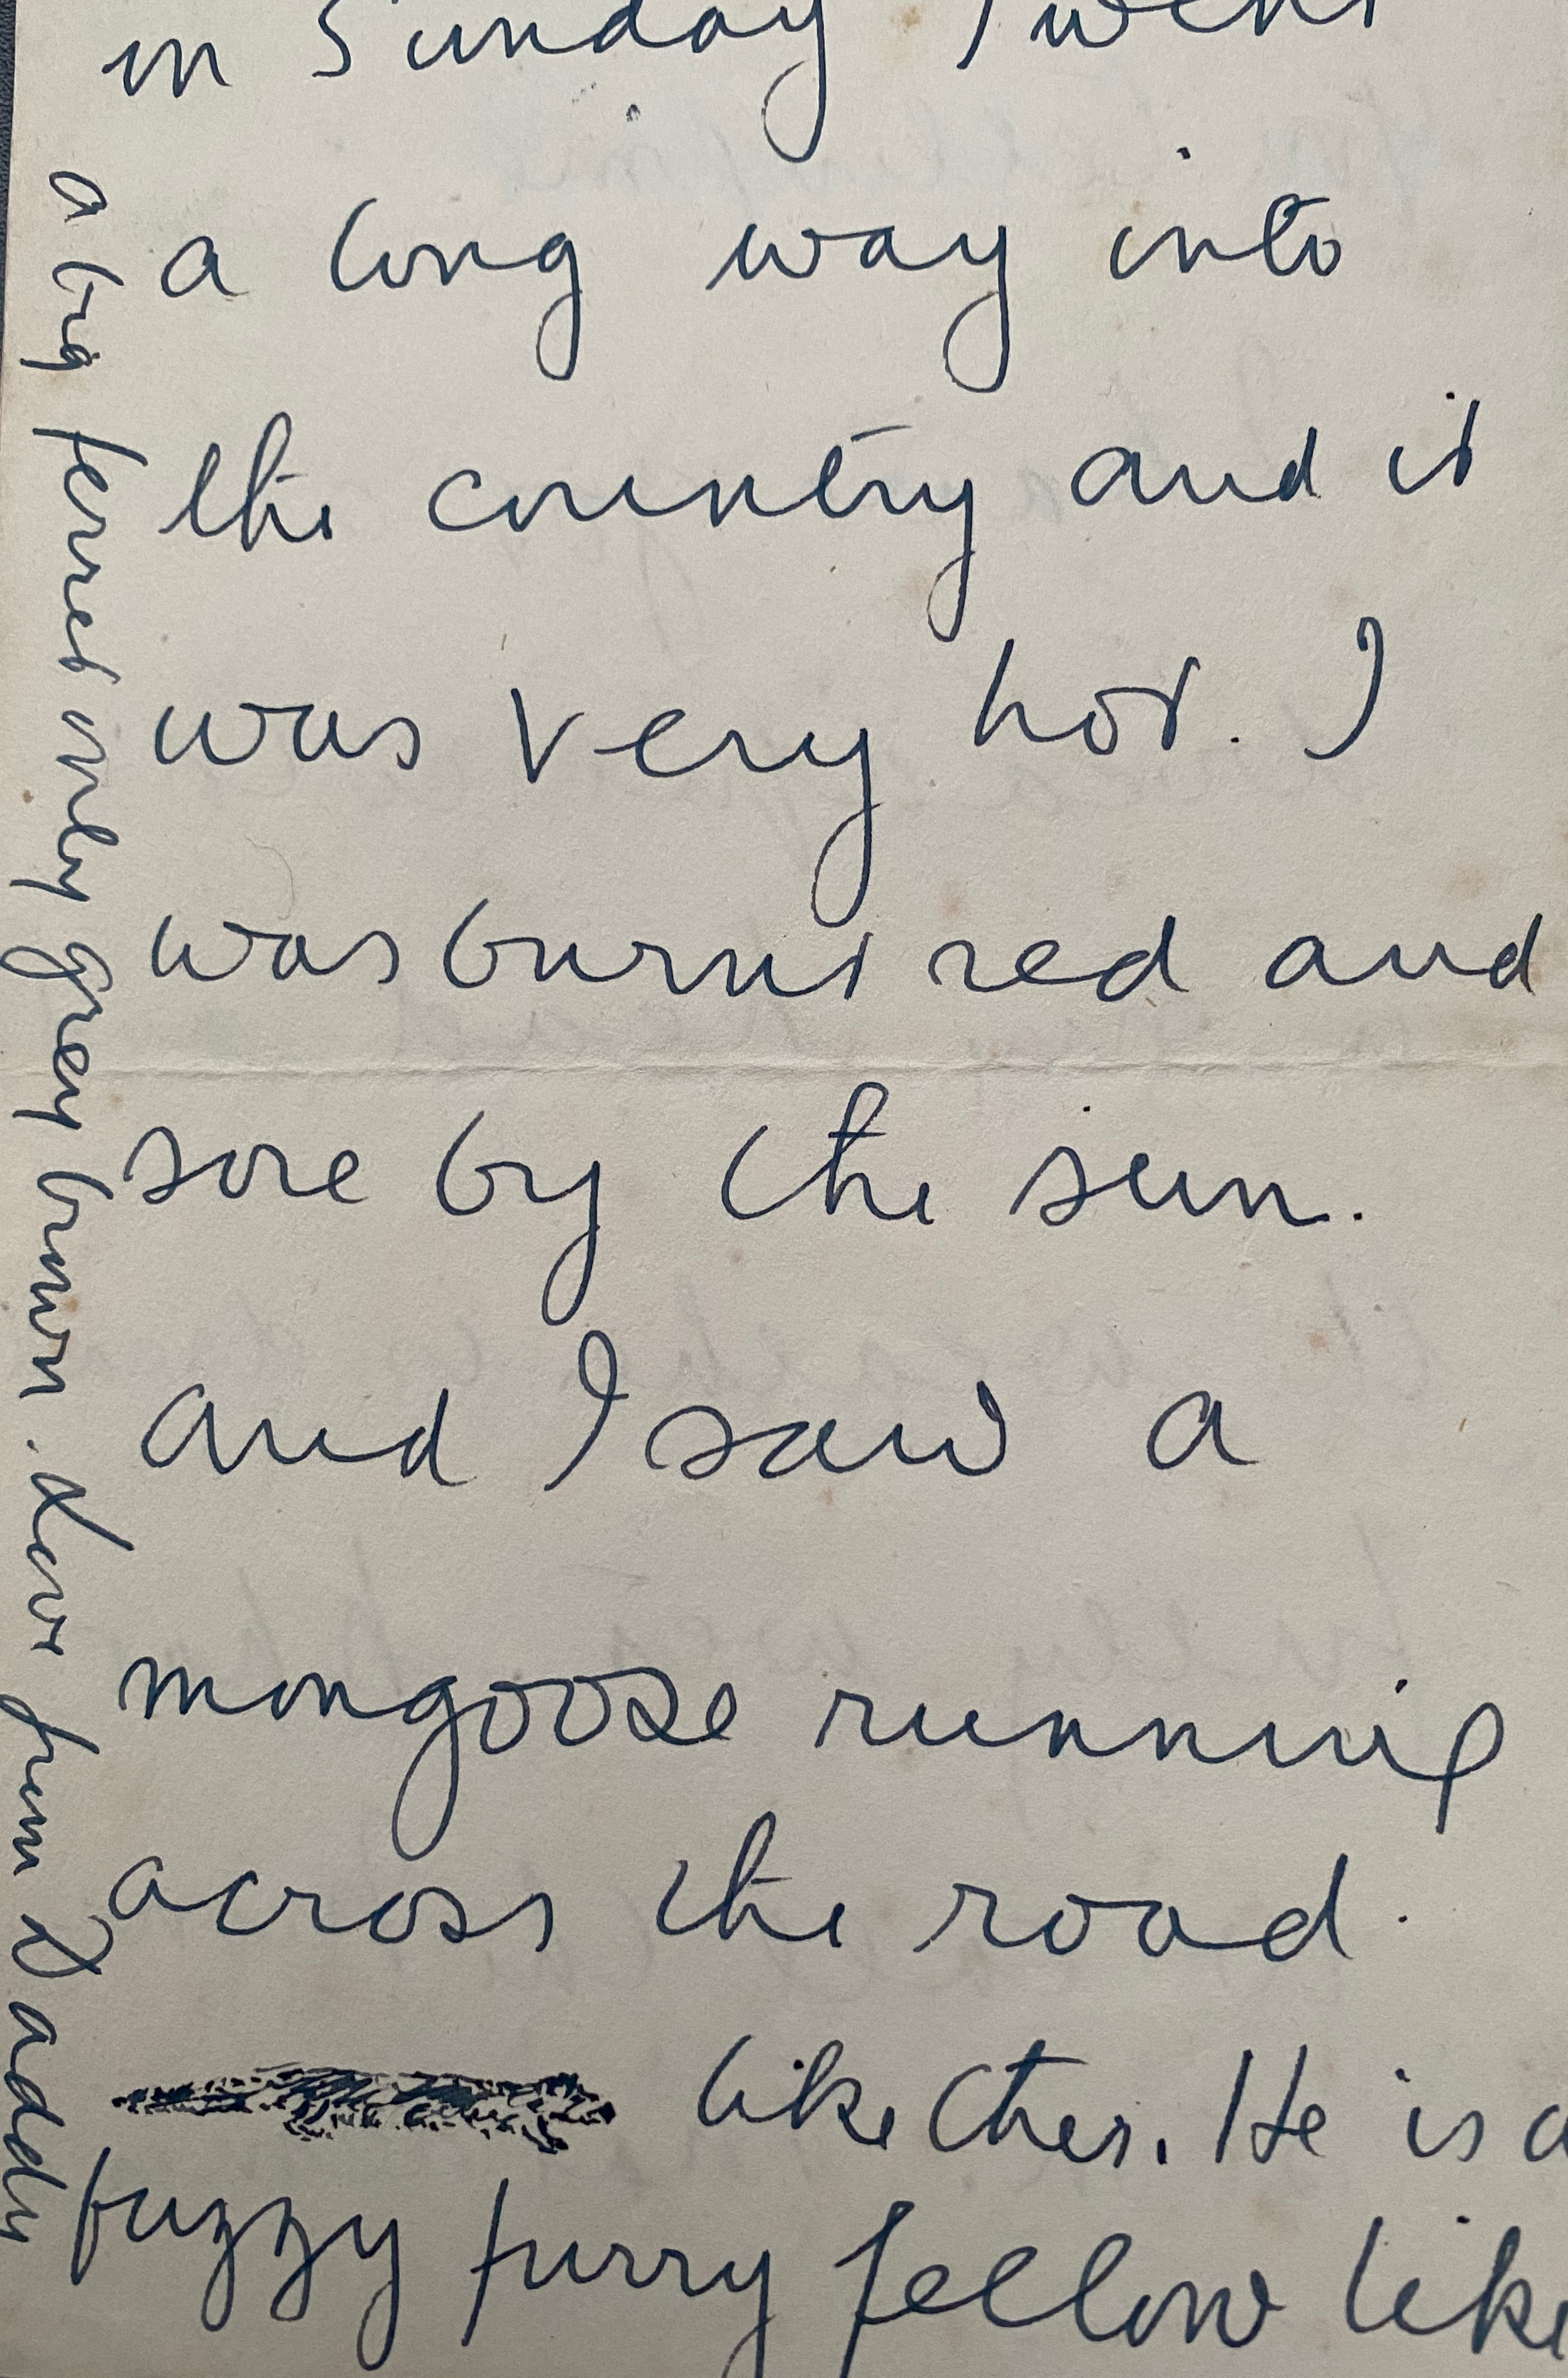 on Sunday I went
a long way into
the country and it
was very hot. I
was burnt red and
sore by the sun.
and I saw a
mongoose running
across the road.
like this. He is a
fuzzy furry fellow like
a big ferret only grey brown. love from Daddy